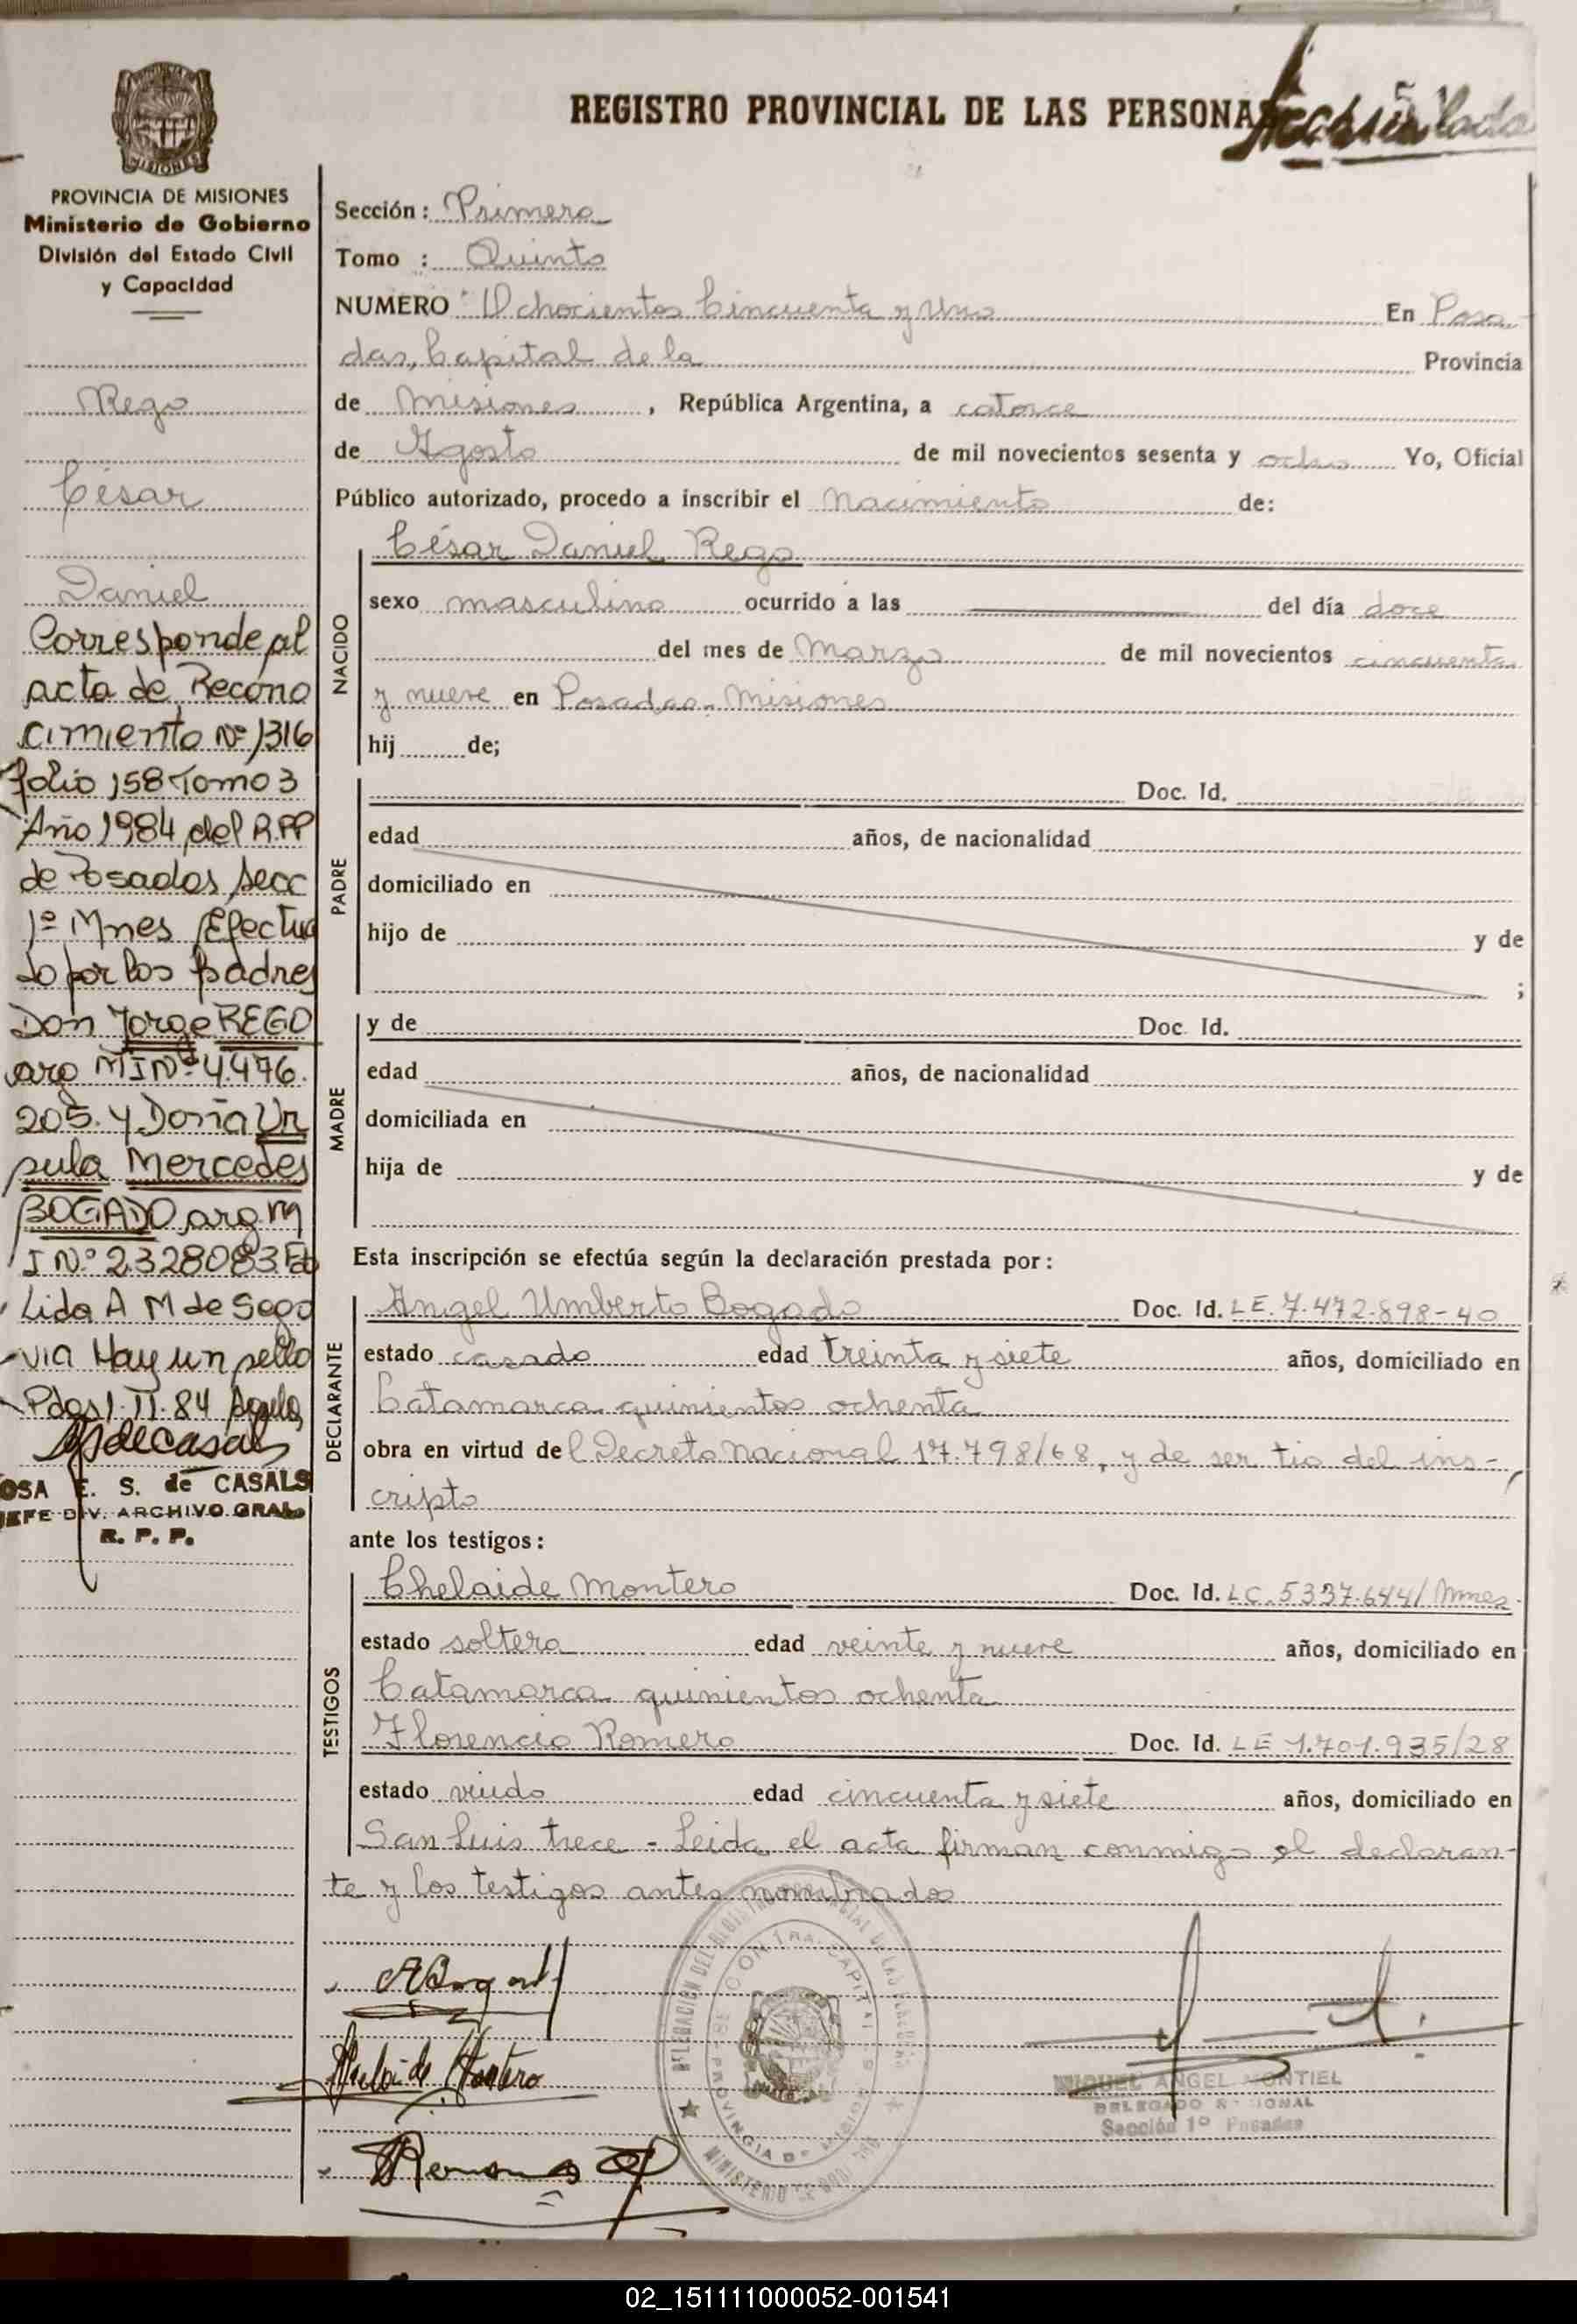 REGISTRO PROVINCIAL DE LAS PERSONAS
MISIONES
PROVINCIA DE MISIONES
Ministerio de Gobierno
División del Estado Civil
y Capacidad
Rego
César
Daniel
Corresponde al
acta de Recono
cimiento Nº 1316
folio 158 Tomo 3
Año 1984 del R.PP
de Posadas Secc
1º Mnes Efectua
do por los padres
Don Jorge REGO
arg MI Nº 4.476.
205. y Doña Ur
sula Mercedes
BOGADO arg M
I Nº 2328083
Lida A M de Sego
via Hay un sello
Pdas 1.II.84
E. S. de CASALS
JEFE DIV. ARCHIVO GRAL
R. P. P.
Sección: Primera
Tomo : Quinto
NUMERO Ochocientos Cincuenta y Uno En Posa
das, Capital de la Provincia
de Misiones , República Argentina, a catorce
de Agosto de mil novecientos sesenta y ocho Yo, Oficial
Público autorizado, procedo a inscribir el Nacimiento de:
César Daniel Rego
NACIDO
sexo masculino ocurrido a las del día doce
del mes de Marzo de mil novecientos cincuenta
y nueve en Posadas-Misiones
hij de;
PADRE
Doc. Id.
edad años, de nacionalidad
domiciliado en
hijo de y de
;
MADRE
y de Doc. Id.
edad años, de nacionalidad
domiciliada en
hija de y de
Esta inscripción se efectúa según la declaración prestada por:
DECLARANTE
Angel Umberto Bogado Doc. Id. LE. 7.472.898-40
estado casado edad treinta y siete años, domiciliado en
Catamarca quinientos ochenta
obra en virtud del Decreto Nacional 17.798/68, y de ser tio del ins-
cripto
ante los testigos:
TESTIGOS
Chelaide Montero Doc. Id. LC. 5337.644/Mnes
estado soltera edad veinte y nueve años, domiciliado en
Catamarca quinientos ochenta
Florencio Romero Doc. Id. LE 1.701.935/28
estado viudo edad cincuenta y siete años, domiciliado en
San Luis trece - Leida el acta firman conmigo el declaran-
te y los testigos antes nombrados
MIGUEL ANGEL MONTIEL
Sección 1º Posadas
02_151111000052-001541